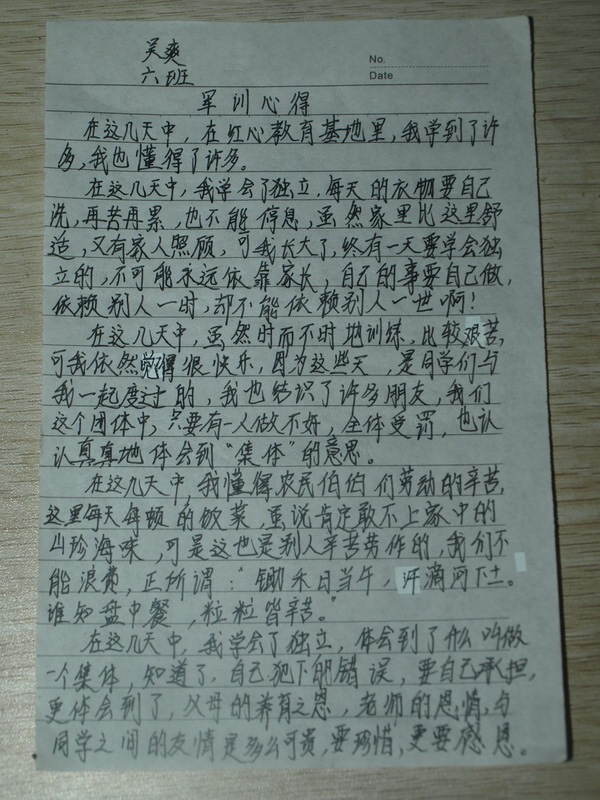 吴爽
No.
六班
Date
军训心得
在这几天中，在红心教育基地里，我学到了许
多，我也懂得了许多。
在这几天中，我学会了独立，每天的衣物要自己
洗，再苦再累，也不能停息，虽然家里比这里舒
适，又有家人照顾，可我长大了，终有一天要学会独
立的，不可能永远依靠家长，自己的事要自己做，
依赖别人一时，却不能依赖别人一世啊！
在这几天中，虽然时而不时地训练，比较艰苦，
可我依然觉得很快乐，因为这些天，是同学们与
我一起度过的，我也结识了许多朋友，我们
这个团体中，只要有一人做不好，全体受罚，也认
认真真地体会到“集体”的意思。
在这几天中，我懂得农民伯伯们劳动的辛苦，
这里每天每顿的饭菜，虽说肯定敌不上家中的
山珍海味，可是这也是别人辛苦劳作的，我们不
能浪费，正所谓：“锄禾日当午，汗滴河下土。
谁知盘中餐，粒粒皆辛苦。”
在这几天中，我学会了独立，体会到了什么叫做
一个集体，知道了，自己犯下的错误，要自己承担，
更体会到了，父母的养育之恩，老师的恩情，与
同学之间的友情是多么可贵，要珍惜，更要感恩。